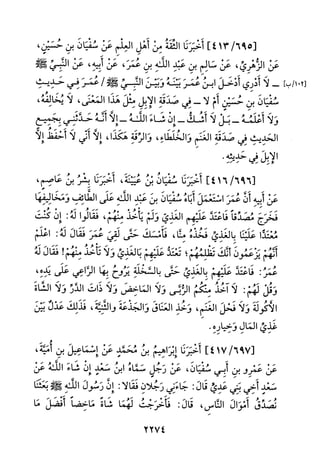 [٤١٣/٦٩٥] أَخْبَرَنَا الثِّقَةُ مِنْ أَهْلِ العِلْمِ عَنْ سُفْيَانَ بنِ حُسَيْنٍ،
عَنْ الزُّهْرِيِّ، عَنْ سَالِمِ بنِ عَبْدِ اللَّهِ بنِ عُمَرَ، عَنْ أَبِيهِ، عَنْ النَّبِيِّ ﷺ
[١٠٢/ب] ـ لَا أَدْرِي أَدْخَلَ ابنُ عُمَرَ بَيْنَهُ وَبَيْنَ النَّبِيِّ ﷺ/ عُمَرَ فِي حَدِيثِ
سُفْيَانَ بنِ حُسَيْنٍ أَمْ لَا ـ فِي صَدَقَةِ الإِبِلِ مِثْلَ هَذَا المَعْنَى، لَا يُخَالِفُهُ،
وَلَا أَعْلَمُهُ ـ بَلْ لَا أَشُكُّ ـ إِنْ شَاءَ اللَّهُ ـ إِلاَّ أَنَّهُ حَدَّثَنِي بِجَمِيعِ
الحَدِيثِ فِي صَدَقَةِ الغَنَمِ وَالخُلَطَاءِ، وَالرِّقَةِ هَكَذَا، إِلاَّ أَنِّي لَا أَحْفَظُ إِلاَّ
الإِبِلَ فِي حَدِيثِهِ.
[٤١٦/٦٩٦] أَخْبَرَنَا سُفْيَانُ بْنُ عُيَيْنَةَ، أَخْبَرَنَا بِشْرُ بنُ عَاصِمٍ،
عَنْ أَبِيهِ أَنَّ عُمَرَ اسْتَعْمَلَ أَبَاهُ سُفْيَانَ بنَ عَبْدِ اللَّهِ عَلَى الطَّائِفِ وَمَخَالِيفِهَا
فَخَرَجَ مُصَدِّقًا فَاعْتَدَّ عَلَيْهِمِ الغَذِيَّ وَلَمْ يَأْخُذْ مِنْهُمْ، فَقَالُوا لَهُ: إِنْ كُنْتَ
مُعْتَدًّا عَلَيْنَا بِالغَذِيِّ فَخُذْهُ مِنَّا، فَأَمْسَكَ حَتَّى لَقِيَ عُمَرَ فَقَالَ لَهُ: اعْلَمْ
أَنَّهُمْ يَزْعُمُونَ أَنَّكَ تَظْلِمُهُمْ؛ تَعْتَدُّ عَلَيْهِمْ بِالغَذِيِّ وَلَا تَأْخُذُ مِنْهُمْ! فَقَالَ لَهُ
عُمَرُ: فَاعْتَدَّ عَلَيْهِمْ بِالغَذِيِّ حَتَّى بِالسَّخْلَةِ يَرُوحُ بِهَا الرَّاعِي عَلَى يَدِهِ،
وَقُلْ لَهُمْ: لَا آخُذُ مِنْكُمُ الرُّبَّى وَلَا المَاخِضَ وَلَا ذَاتَ الدَّرِّ وَلَا الشَّاةَ
الأَكُولَةَ وَلَا فَحْلَ الغَنَمِ، وَخُذِ العَنَاقَ وَالجَذَعَةَ وَالثَّنِيَّةَ، فَذَلِكَ عَدْلٌ بَيْنَ
غَذِيِّ المَالِ وَخِيَارِهِ.
[٤١٧/٦٩٧] أَخْبَرَنَا إِبْرَاهِيمُ بنُ مُحَمَّدٍ عَنْ إِسْمَاعِيلَ بنِ أُمَيَّةَ،
عَنْ عَمْرِو بنِ أَبِي سُفْيَانَ، عَنْ رَجُلٍ سَمَّاهُ ابنُ سَعْدٍ إِنْ شَاءَ اللَّهُ عَنْ
سَعْدٍ أَخِي بَنِي عَدِيٍّ قَالَ: جَاءَنِي رَجُلَانِ فَقَالَا: إِنَّ رَسُولَ اللَّهِ ﷺ بَعَثَنَا
نُصَدِّقُ أَمْوَالَ النَّاسِ، قَالَ: فَأَخْرَجْتُ لَهُمَا شَاةً مَاخِضاً أَفْضَلَ مَا
٢٢٧٤